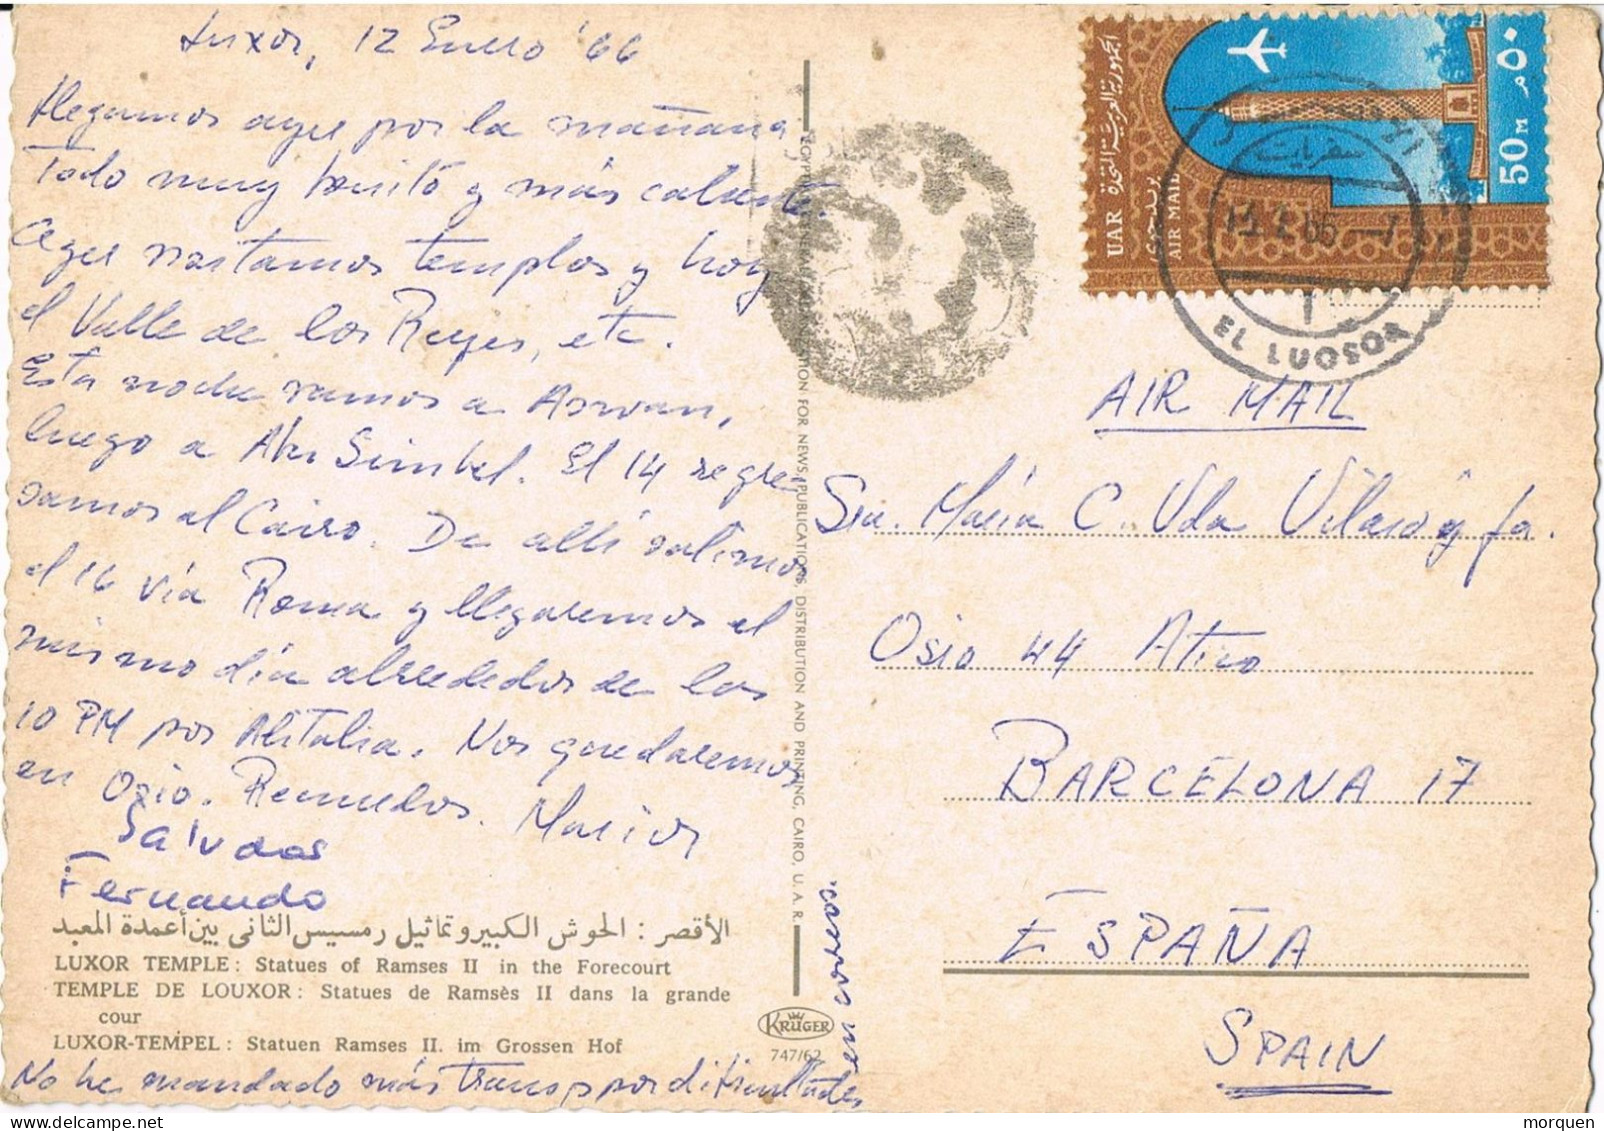 Luxor, 12 Enero '66
Llegamos ayer por la mañana
Todo muy bonito y más caliente.
Ayer visitamos templos y hoy
el Valle de los Reyes, etc.
Esta noche vamos a Aswan,
luego a Abu Simbel. El 14 regre
samos al Cairo. De allí salimos
el 16 vía Roma y llegaremos el
mismo día alrededor de las
10 PM por Alitalia. Nos quedaremos
en Osio. Recuerdos.
Saludos
Fernando
الأقصر : الحوش الكبير وتماثيل رمسيس الثانى بين أعمدة المعبد
LUXOR TEMPLE: Statues of Ramses II in the Forecourt
TEMPLE DE LOUXOR: Statues de Ramsès II dans la grande
cour
LUXOR-TEMPEL: Statuen Ramses II. im Grossen Hof
No he mandado más por dificultades
en correos.
DISTRIBUTION AND PRINTING, CAIRO, U. A. R.
KRÜGER
747/62
الجمهورية العربية المتحدة
UAR
بريد جوى
AIR MAIL
٥٠ م
50 M
EL LUOSOR
AIR MAIL
Sra. María C. Vda Vilaró y fa.
Osio 44 Atico
BARCELONA 17
ESPAÑA
SPAIN
morquen